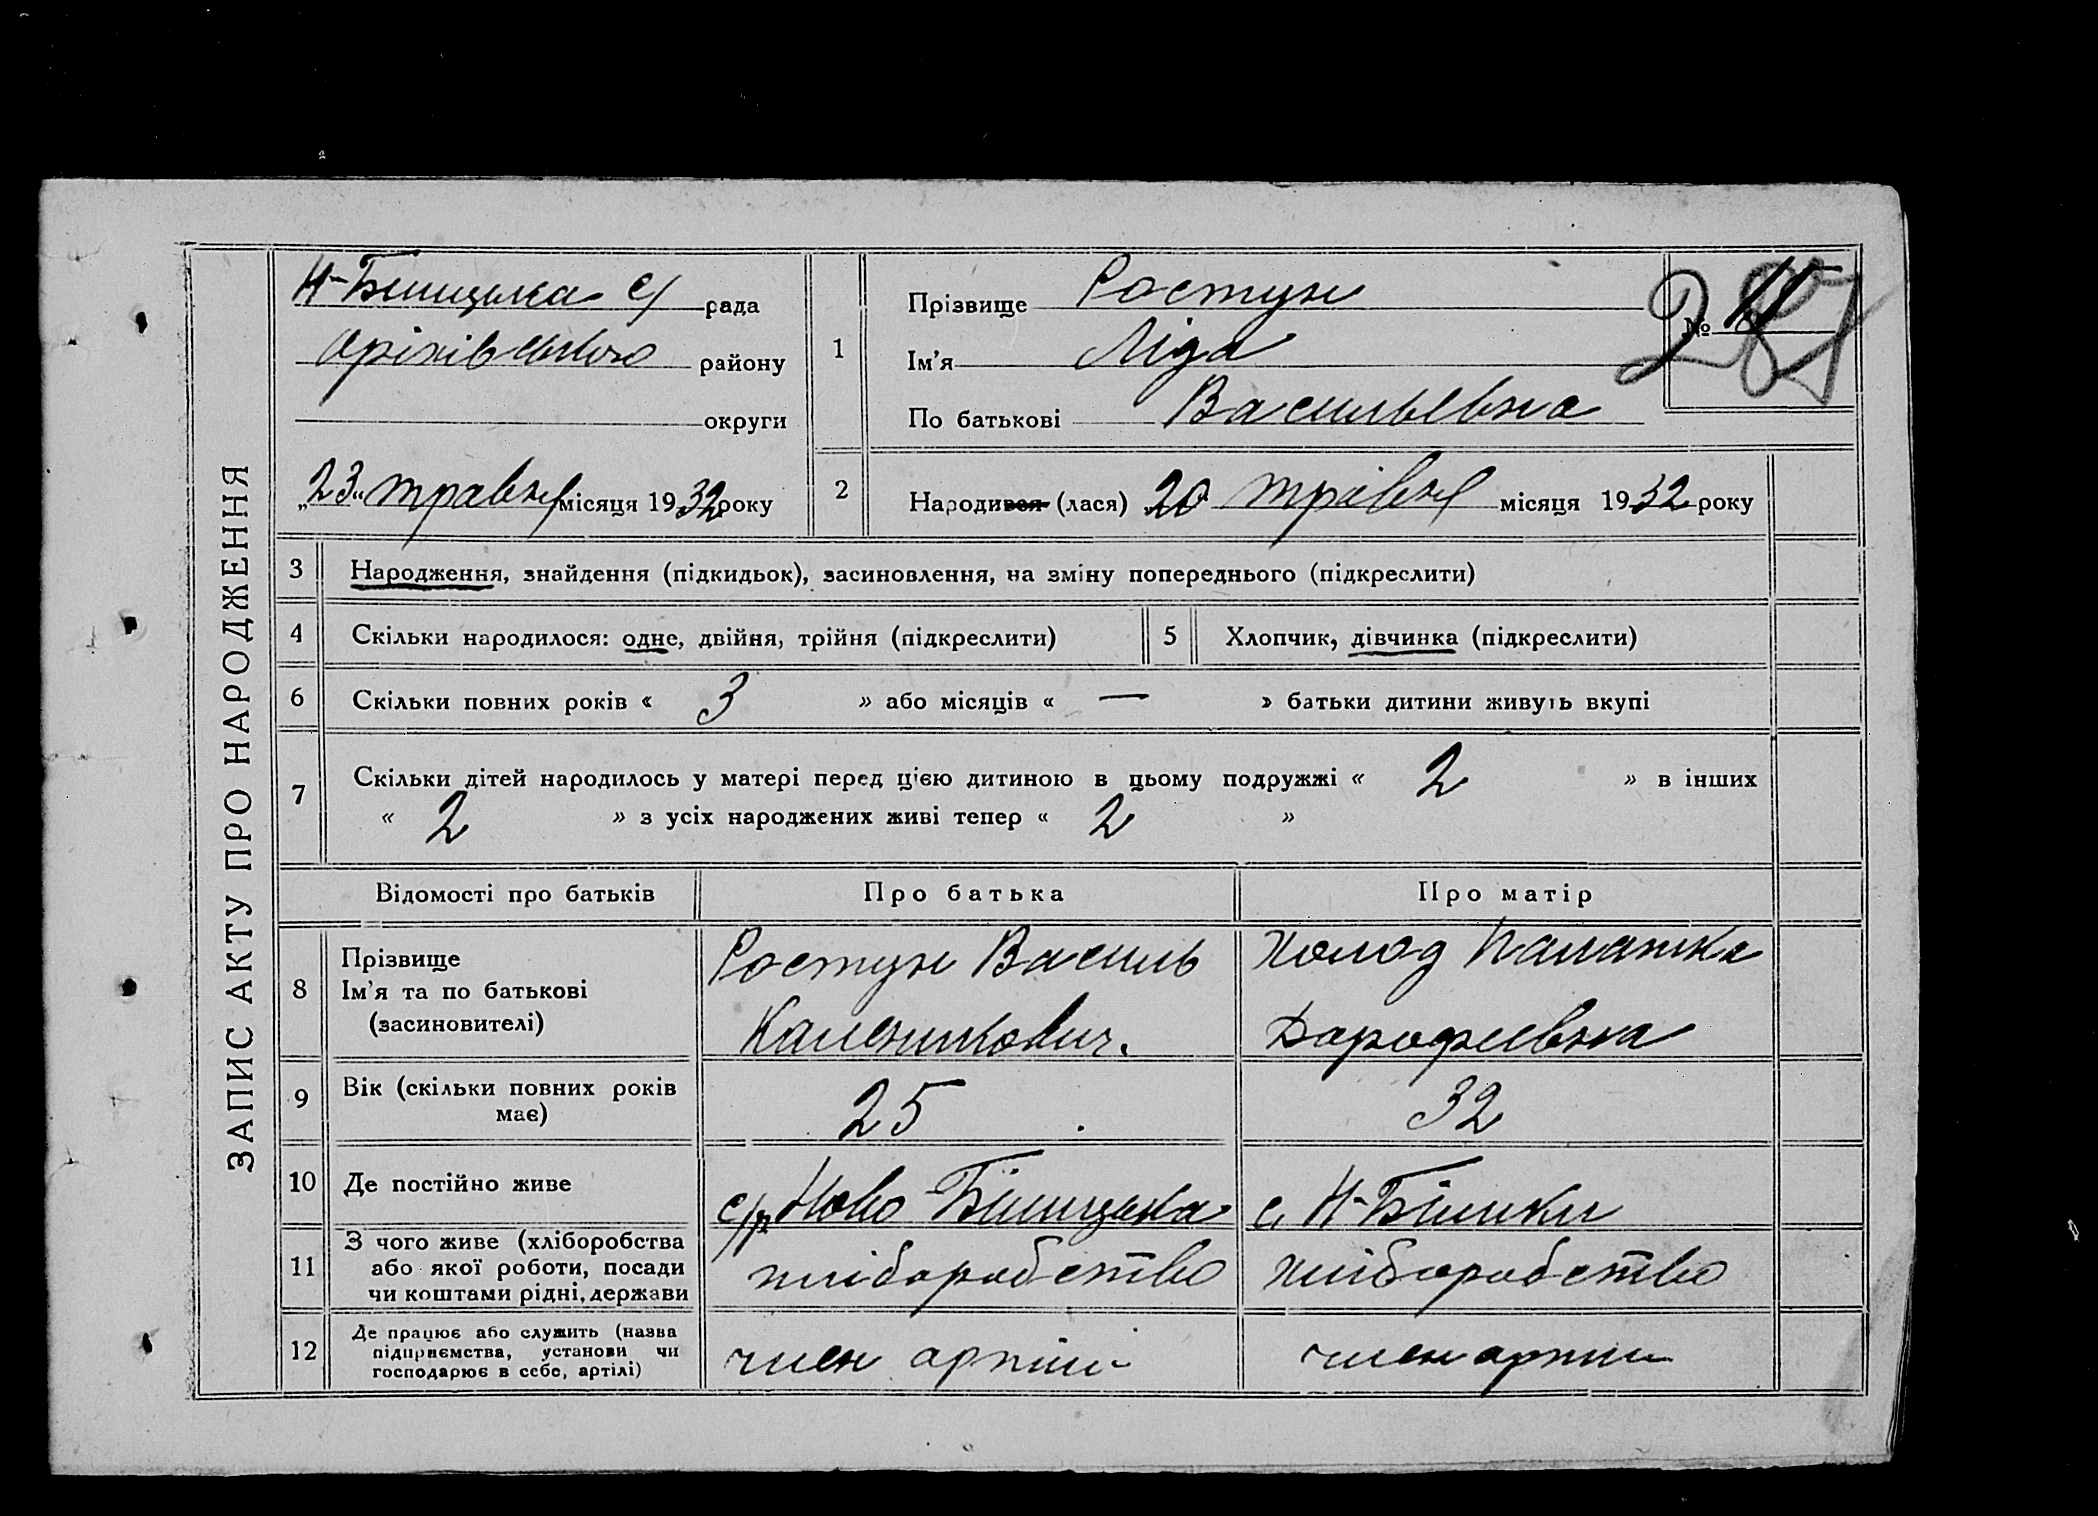 ЗАПИС АКТУ ПРО НАРОДЖЕННЯ
Н-Білицька с/ рада
Оріхівського району
округи
„23“ травня місяця 1932 року
1
Прізвище Ростун
Ім'я Ліда
По батькові Васильевна
№ 11
281
2
Народився (лася) 20 травня місяця 1932 року
3
Народження, знайдення (підкидьок), засиновлення, на зміну попереднього (підкреслити)
4
Скільки народилося: одне, двійня, трійня (підкреслити)
5
Хлопчик, дівчинка (підкреслити)
6
Скільки повних років « 3 » або місяців « — » батьки дитини живуть вкупі
7
Скільки дітей народилось у матері перед цією дитиною в цьому подружжі « 2 » в інших
« 2 » з усіх народжених живі тепер « 2 »
Відомості про батьків
Про батька
Про матір
8
Прізвище
Ім'я та по батькові
(засиновителі)
Ростун Василь
Каленикович.
Холод Палажка
Дарофеевна
9
Вік (скільки повних років
має)
25
32
10
Де постійно живе
с/р Ново-Білицька
с. Н-Білики
11
З чого живе (хліборобства
або якої роботи, посади
чи коштами рідні, держави
хліборобство
хліборобство
12
Де працює або служить (назва
підприємства, установи чи
господарює в себе, артілі)
член артілі
член артілі